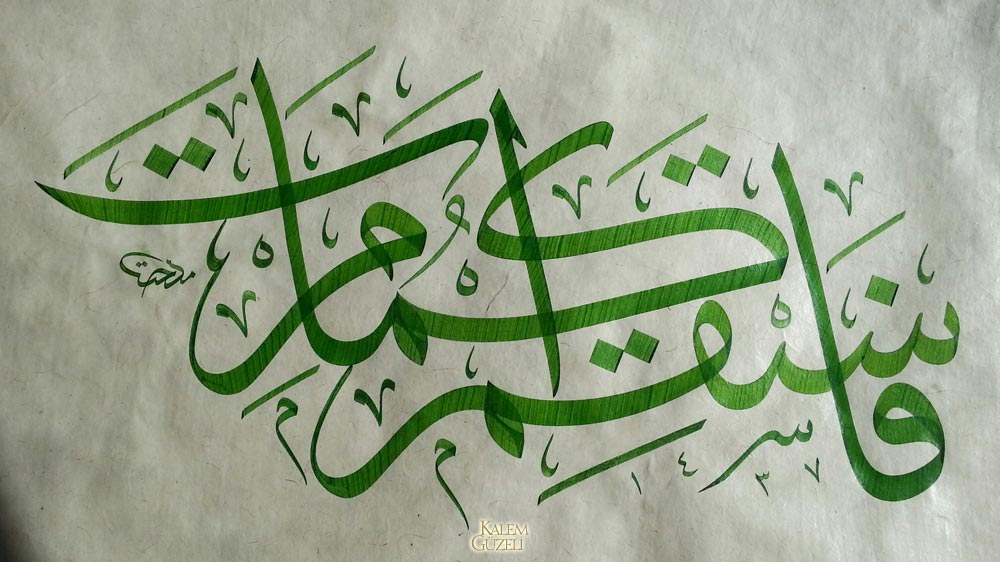 فَاسْتَقِمْ كَمَا أُمِرْتَ
مدحت
١٤٣٧
KALEM
GÜZELİ